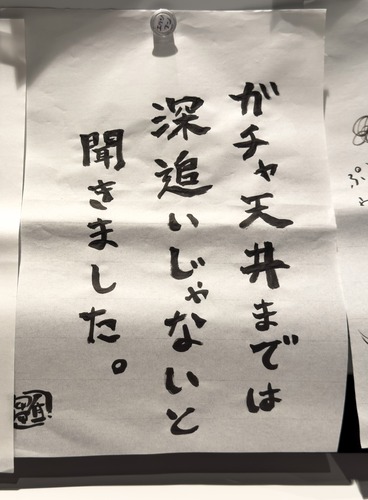 ガチャ天井までは
深追いじゃないと
聞きました。